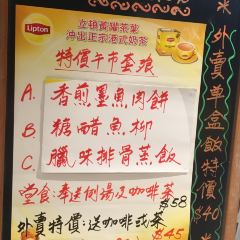 Lipton
立頓黃罐茶葉
沖出正宗港式奶茶
特價午市套飡
A. 香煎墨魚肉餅
B. 糖醋魚柳
C. 臘味排骨蒸飯
堂食:奉送例湯及咖啡茶
$58
外賣特價:送咖啡或茶
$45
外賣單盒飯特價$40